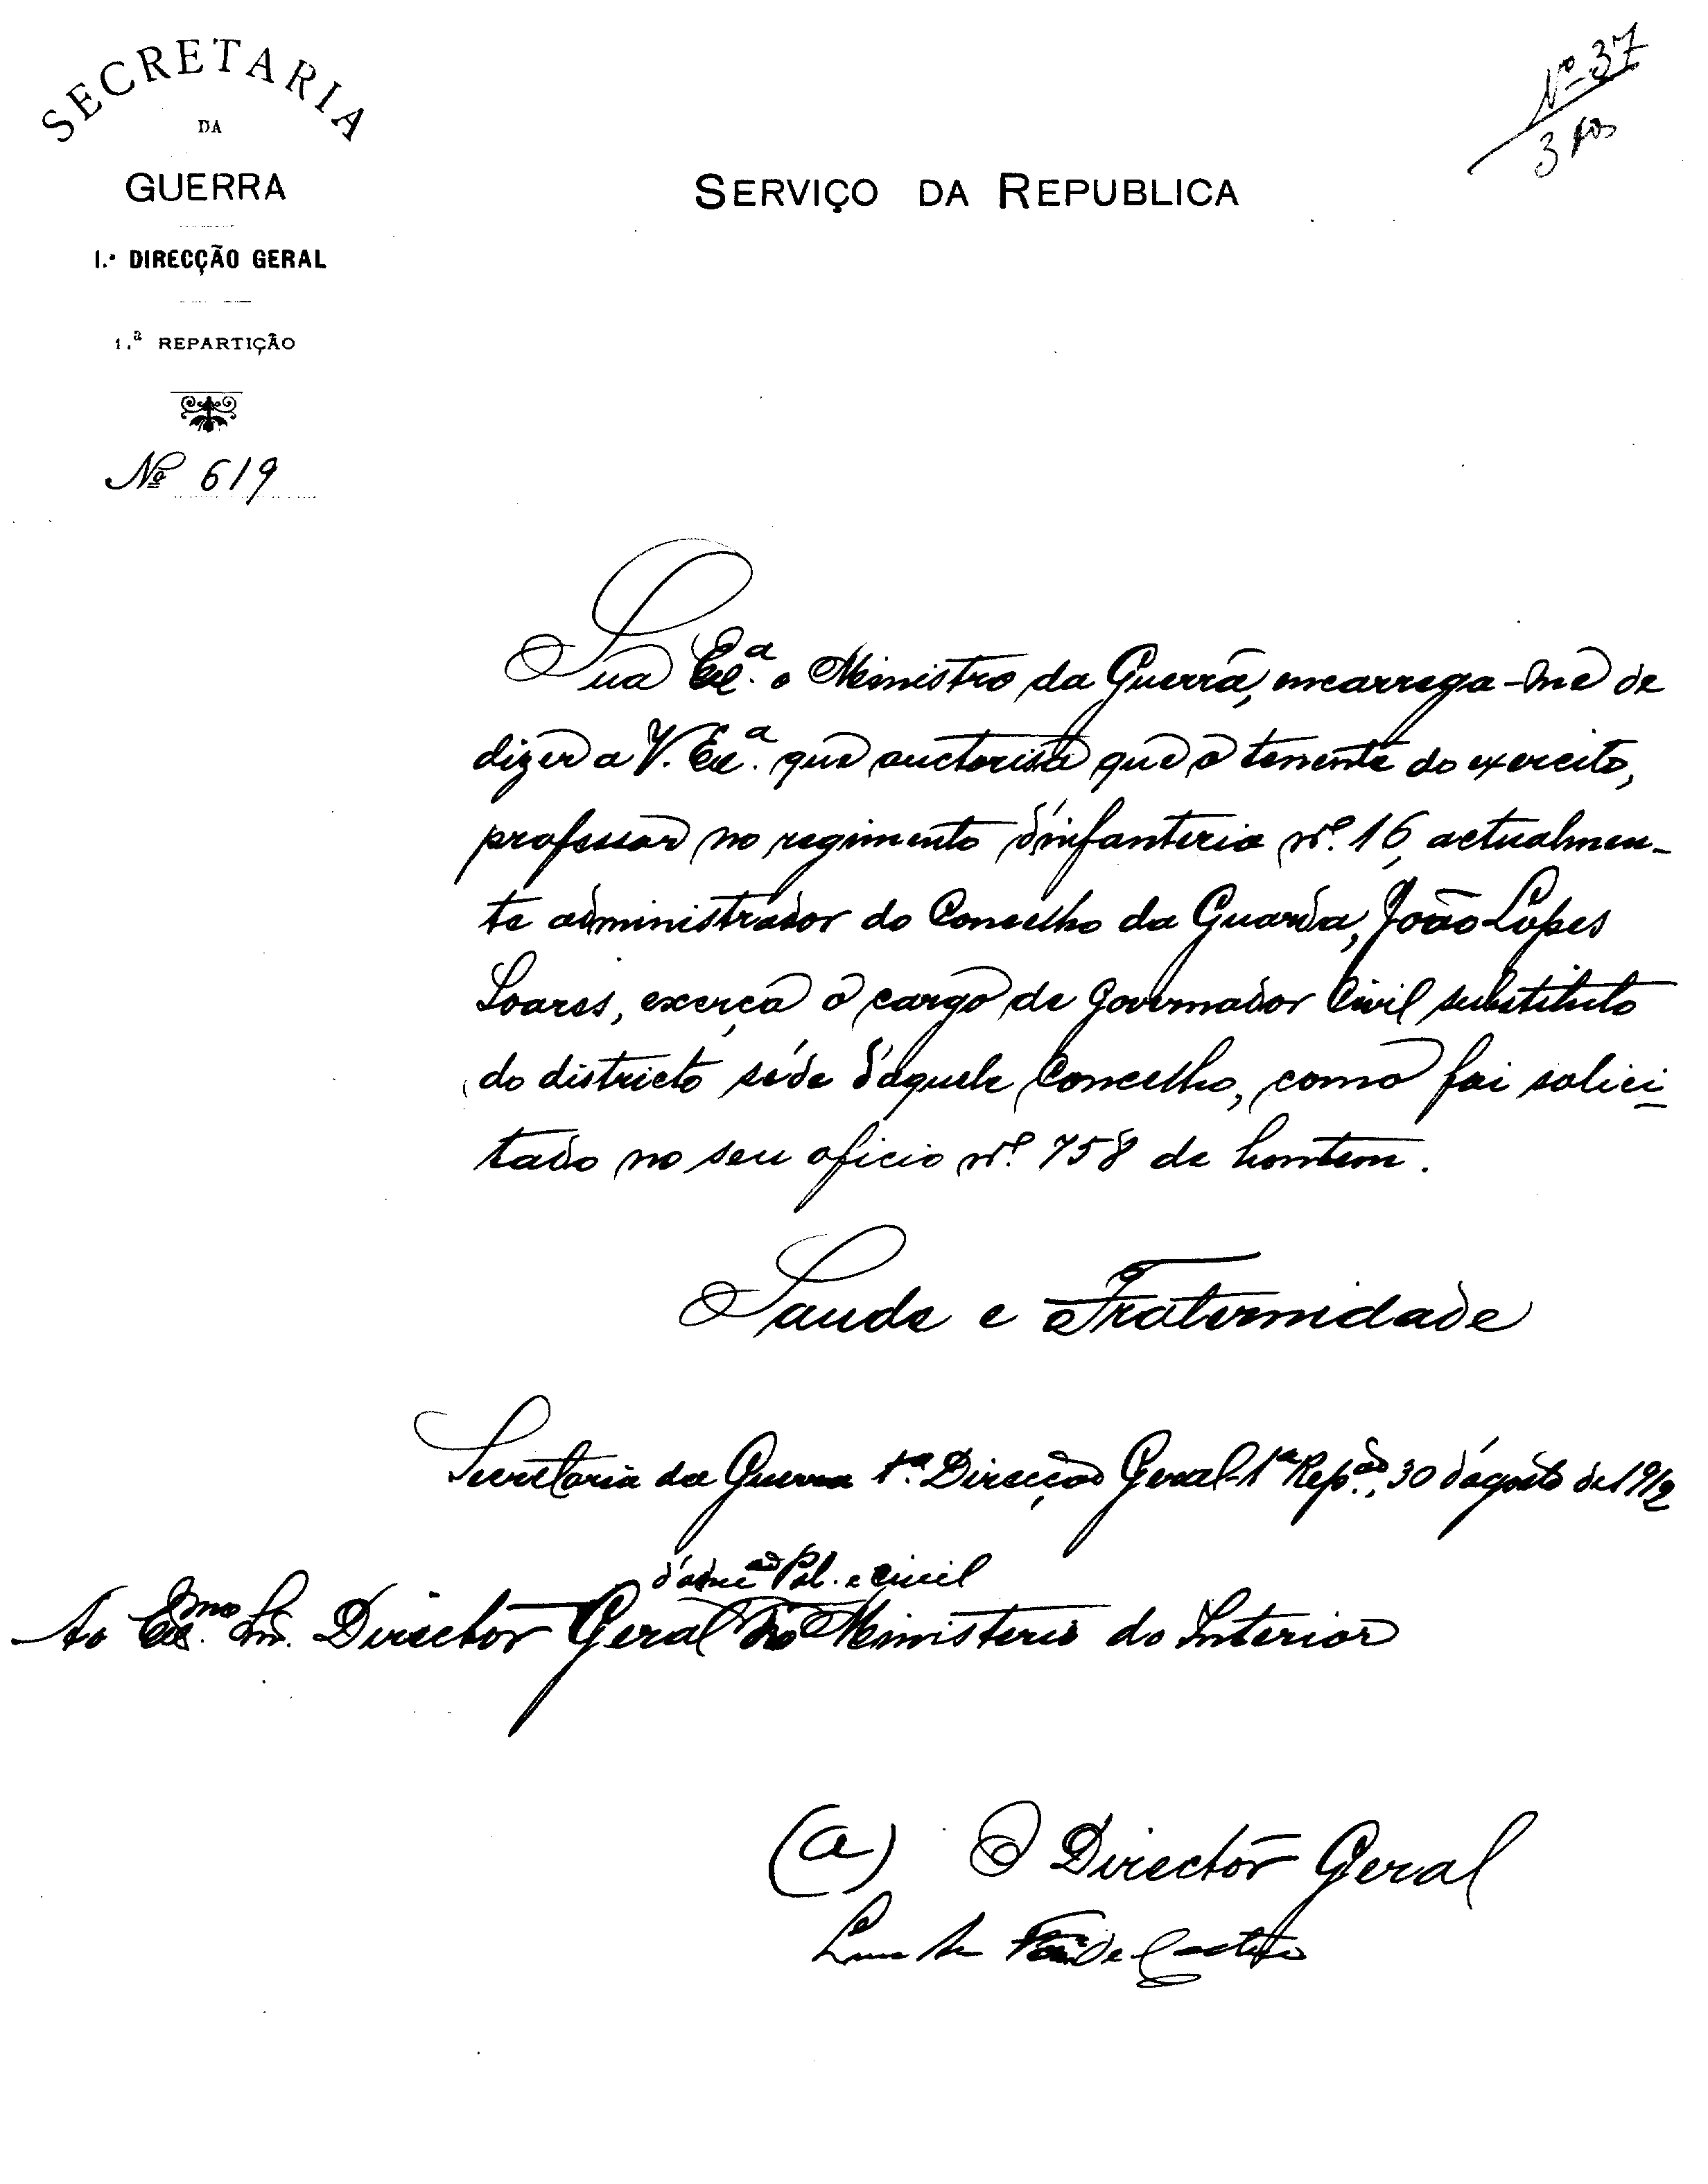 SECRETARIA
DA
GUERRA
1.ª DIRECÇÃO GERAL
1.ª REPARTIÇÃO
Nº 619
Nº 37
3
SERVIÇO DA REPUBLICA
Sua Exª. o Ministro da Guerra, encarrega-me de
dizer a V. Exª. que auctorisa que o tenente do exercito,
professor no regimento d'infanteria nº. 16, actualmen-
te administrador do Concelho da Guarda, João Lopes
Soares, exerça o cargo de Governador Civil substituto
do districto séde d'aquele Concelho, como foi solici-
tado no seu oficio nº. 758 de hontem.
Saude e Fraternidade
Secretaria da Guerra 1ª. Direcção Geral-1ª Repão., 30 d'agosto de 1912
d'admão Pol. e Civil
Ao Exmo. Snr. Director Geral do Ministerio do Interior
(a) O Director Geral
de Castro